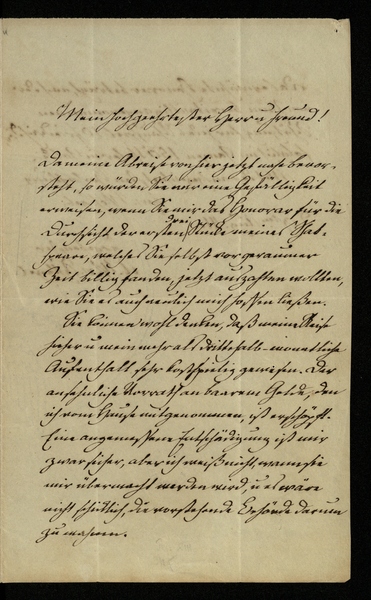 Mein hochgeehrtester Herr u Freund!
Da meine Abreise von hier jetzt nahe bevor-
steht, so würden Sie mir eine Gefälligkeit
erweisen, wenn Sie mir das Honorar für die
Durchsicht der ersten drei Stücke meines Shak-
speare, welches Sie selbst vor geraumer
Zeit billig fanden, jetzt auszahlen wollten,
wie Sie es auch neulich mich hoffen ließen.
Sie können wohl denken, daß meine Reise
hieher u mein mehr als dritthalb-monatliche
Aufenthalt sehr kostspielig gewesen. Der
ansehnliche Vorrath an baarem Gelde, den
ich vom Hause mitgenommen, ist erschöpft.
Eine angemessene Entschädigung ist mir
zwar sicher, aber ich weiß nicht, wann sie
mir übermacht werden wird, u es wäre
nicht schicklich, die vorstehende Behörde darum
zu mahnen.